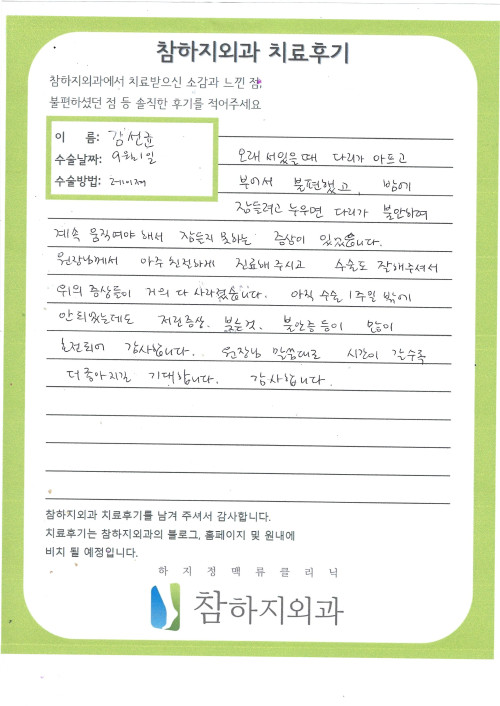 참하지외과 치료후기
참하지외과에서 치료받으신 소감과 느낀 점,
불편하셨던 점 등 솔직한 후기를 적어주세요
이 름: 김선균
수술날짜: 9월21일
수술방법: 레이저
오래 서있을때 다리가 아프고
부어서 불편했고, 밤에
잠들려고 누우면 다리가 불안하여
계속 움직여야 해서 잠들지 못하는 증상이 있었습니다.
원장님께서 아주 친절하게 진료해 주시고 수술도 잘해주셔서
위의 증상들이 거의 다 사라졌습니다. 아직 수술 1주일 밖에
안되었는데도 저린증상, 붓는것, 불안증 등이 많이
호전되어 감사합니다. 원장님 말씀대로 시간이 갈수록
더 좋아지길 기대합니다. 감사합니다.
참하지외과 치료후기를 남겨 주셔서 감사합니다.
치료후기는 참하지외과의 블로그, 홈페이지 및 원내에
비치 될 예정입니다.
하지정맥류클리닉
참하지외과